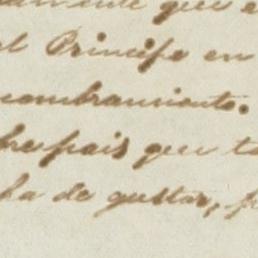 que e
el Principe en
nombramiento.
pais que t
ha de gustar, p